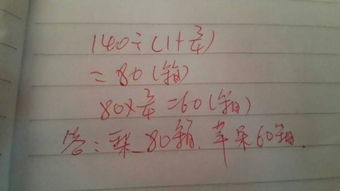 140÷(1+3/4)
=80(箱)
80×3/4=60(箱)
答:梨 80箱,苹果60箱.